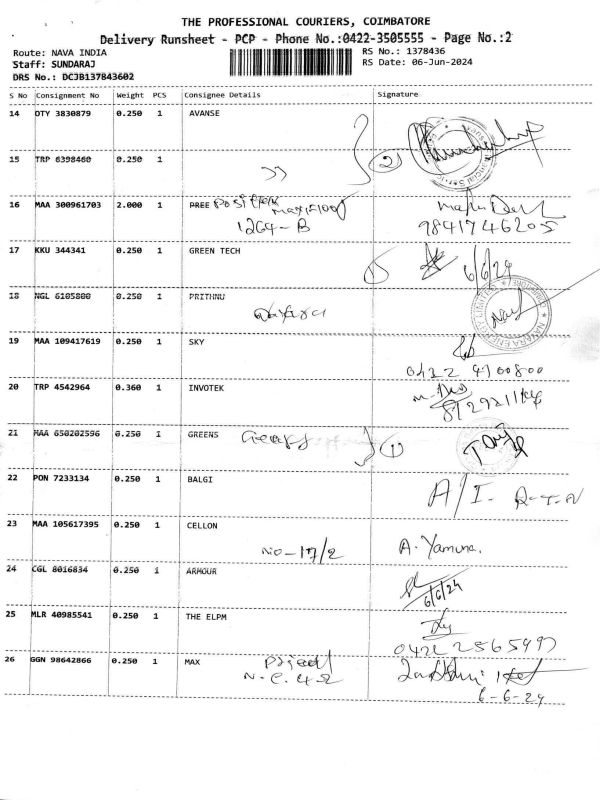 THE PROFESSIONAL COURIERS, COIMBATORE
Delivery Runsheet - PCP - Phone No.:0422-3505555 - Page No.:2
Route: NAVA INDIA
RS No.: 1378436
Staff: SUNDARAJ
RS Date: 06-Jun-2024
DRS No.: DCJB137843602
S No Consignment No Weight PCS Consignee Details Signature
14 OTY 3830879 0.250 1 AVANSE
15 TRP 6398460 0.250 1
2
16 MAA 300961703 2.000 1 PREE
1264-B
9841746205
17 KKU 344341 0.250 1 GREEN TECH
6/6/24
18 NGL 6105800 0.250 1 PRITHNU
19 MAA 109417619 0.250 1 SKY
0422 4700800
20 TRP 4542964 0.360 1 INVOTEK
21 MAA 650202596 0.250 1 GREENS
1
22 PON 7233134 0.250 1 BALGI
A/I. R-T-N
23 MAA 105617395 0.250 1 CELLON
NO-17/2 A. Yamuna.
24 CGL 8016834 0.250 1 ARMOUR
6/6/24
25 MLR 40985541 0.250 1 THE ELPM
0422 2565997
26 GGN 98642866 0.250 1 MAX
6-6-24